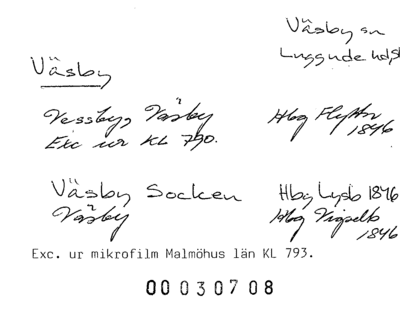 Väsby sn
Luggude hds
Väsby
Vessby, Väsby Hbg Flyttn
Exc ur KL 790. 1846
Väsby Socken Hbg Lysb 1846
Väsby Hbg Vigselb
1846
Exc. ur mikrofilm Malmöhus län KL 793.
00030708